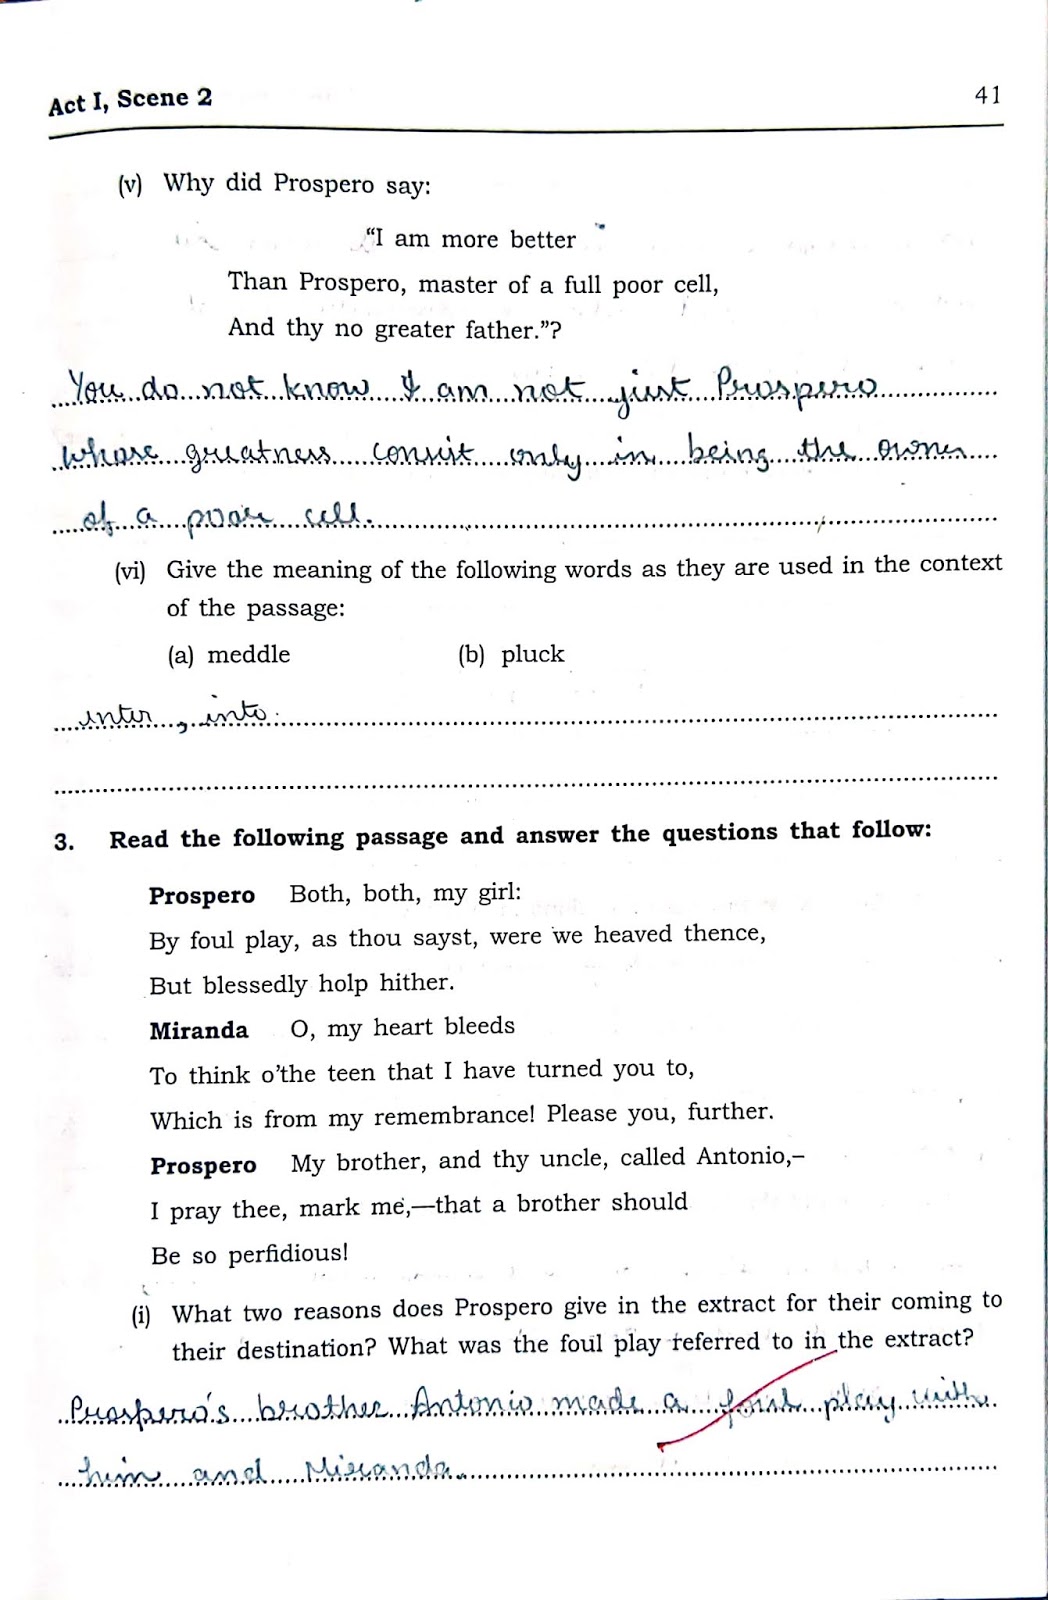 Act I, Scene 2 41
(v) Why did Prospero say:
“I am more better
Than Prospero, master of a full poor cell,
And thy no greater father.”?
You do not know I am not just Prospero
whose greatness consist only in being the owner
of a poor cell.
(vi) Give the meaning of the following words as they are used in the context
of the passage:
(a) meddle (b) pluck
enter, into.
3. Read the following passage and answer the questions that follow:
Prospero Both, both, my girl:
By foul play, as thou sayst, were we heaved thence,
But blessedly holp hither.
Miranda O, my heart bleeds
To think o’the teen that I have turned you to,
Which is from my remembrance! Please you, further.
Prospero My brother, and thy uncle, called Antonio,–
I pray thee, mark me,—that a brother should
Be so perfidious!
(i) What two reasons does Prospero give in the extract for their coming to
their destination? What was the foul play referred to in the extract?
Prospero's brother Antonio made a foul play with
him and Miranda.